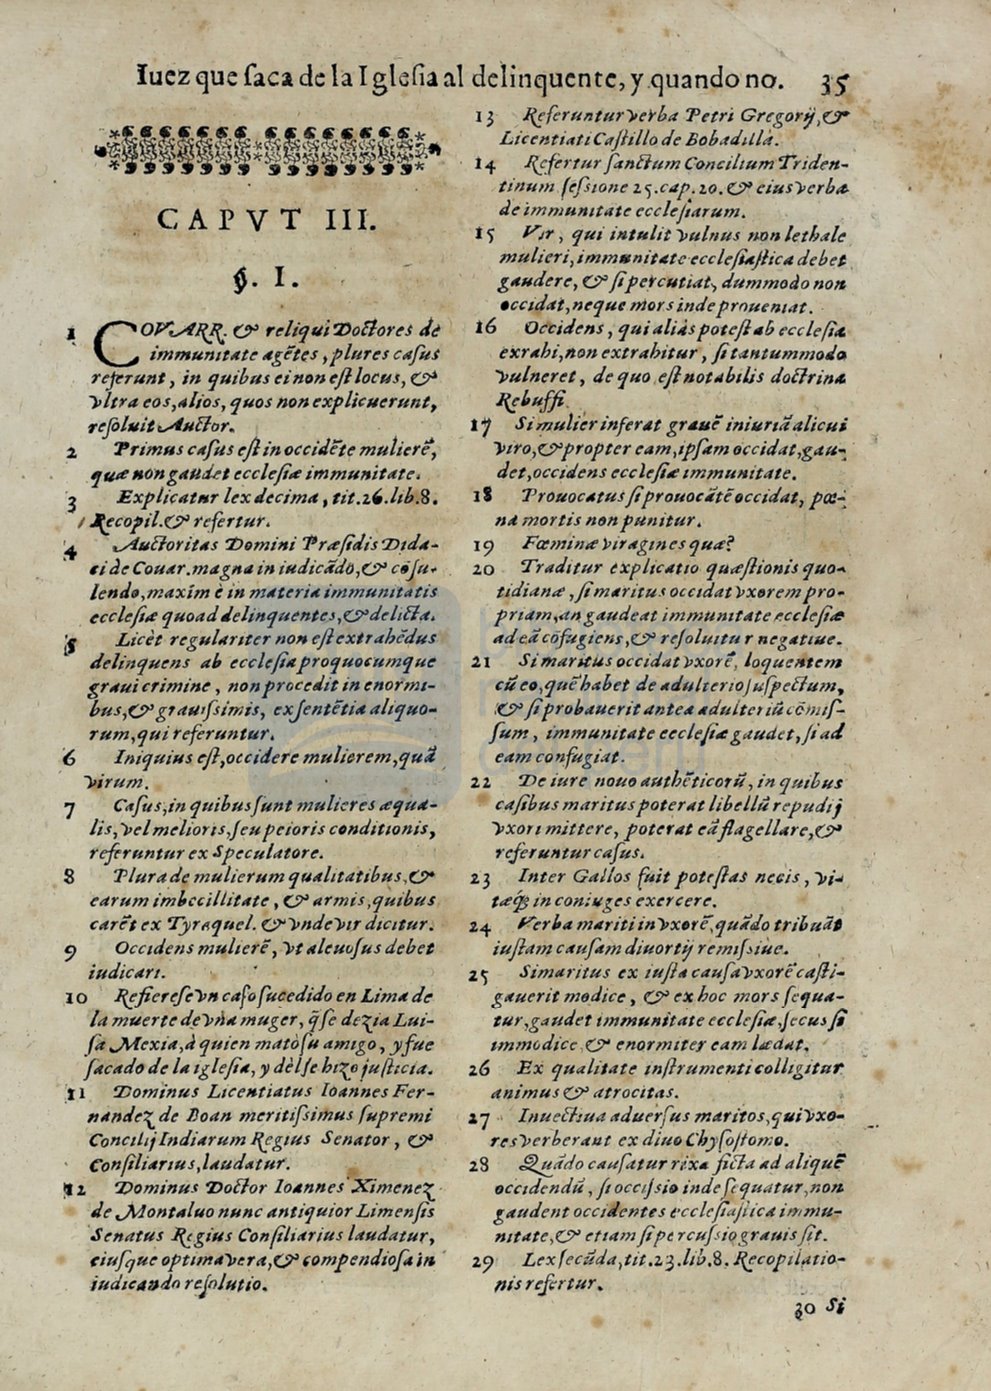 Iuez que ſaca de la Igleſia al delinquente, y quando no. 35
CAPVT III.
§. I.
1 COVARR. & reliqui Doctores de
immunitate agẽtes, plures caſus
referunt, in quibus ei non eſt locus, &
vltra eos, alios, quos non explicuerunt,
reſoluit Auctor.
2 Primus caſus eſt in occidẽte mulierẽ,
quæ non gaudet eccleſiæ immunitate.
3 Explicatur lex decima, tit.26.lib.8.
Recopil. & refertur.
4 Auctoritas Domini Præſidis Dida-
ci de Couar. magna in iudicãdo, & cõſu-
lendo, maximè in materia immunitatis
eccleſiæ quoad delinquentes, & delicta.
5 Licèt regulariter non eſt extrahẽdus
delinquens ab eccleſia pro quocumque
graui crimine, non procedit in enormi-
bus, & grauiſsimis, ex ſentẽtia aliquo-
rum, qui referuntur.
6 Iniquius eſt, occidere mulierem, quã
virum.
7 Caſus, in quibus ſunt mulieres æqua-
lis, vel melioris, ſeu peioris conditionis,
referuntur ex Speculatore.
8 Plura de mulierum qualitatibus, &
earum imbecillitate, & armis, quibus
carẽt ex Tyraquel. & vnde vir dicitur.
9 Occidens mulierẽ, vt aleuoſus debet
iudicari.
10 Refiereſe vn caſo ſucedido en Lima de
la muerte de vna muger, q̃ ſe dezia Lui-
ſa Mexia, à quien matò ſu amigo, y fue
ſacado de la igleſia, y dèl ſe hizo juſticia.
11 Dominus Licentiatus Ioannes Fer-
nandez de Boan meritiſsimus ſupremi
Concilij Indiarum Regius Senator, &
Conſiliarius, laudatur.
12 Dominus Doctor Ioannes Ximenez
de Montaluo nunc antiquior Limenſis
Senatus Regius Conſiliarius laudatur,
eiuſque optima vera, & compendioſa in
iudicando reſolutio.
13 Referuntur verba Petri Gregorij, &
Licentiati Caſtillo de Bobadilla.
14 Refertur ſanctum Concilium Triden-
tinum ſeſsione 25. cap. 20. & eius verba
de immunitate eccleſiarum.
15 Vir, qui intulit vulnus non lethale
mulieri, immunitate eccleſiaſtica debet
gaudere, & ſi percutiat, dummodo non
occidat, neque mors inde proueniat.
16 Occidens, qui aliàs poteſt ab eccleſia
exrahi, non extrahitur, ſi tantummodo
vulneret, de quo eſt notabilis doctrina
Rebuffi.
17 Si mulier inferat grauẽ iniuriã alicui
viro, & propter eam, ipſam occidat, gau-
det, occidens eccleſiæ immunitate.
18 Prouocatus ſi prouocãtẽ occidat, pœ-
na mortis non punitur.
19 Fœminæ viragines quæ?
20 Traditur explicatio quæſtionis quo-
tidianæ, ſi maritus occidat vxorem pro-
priam, an gaudeat immunitate eccleſiæ
ad eã cõfugiens, & reſoluitur negatiue.
21 Si maritus occidat vxorẽ, loquentem
cũ eo, quẽ habet de adulterio ſuſpectum,
& ſi probauerit antea adulteriũ cõmiſ-
ſum, immunitate eccleſiæ gaudet, ſi ad
eam confugiat.
22 De iure nouo authẽticorũ, in quibus
caſibus maritus poterat libellũ repudij
vxori mittere, poterat eã flagellare, &
referuntur caſus.
23 Inter Gallos fuit poteſtas necis, vi-
tæq́; in coniuges exercere.
24 Verba mariti in vxorẽ, quãdo tribuãt
iuſtam cauſam diuortij remiſsiue.
25 Si maritus ex iuſta cauſa vxorẽ caſti-
gauerit modice, & ex hoc mors ſequa-
tur, gaudet immunitate eccleſiæ, ſecus ſi
immodice, & enormiter eam lædat.
26 Ex qualitate inſtrumenti colligitur
animus & atrocitas.
27 Inuectiua aduerſus maritos, qui vxo-
res verberant ex diuo Chyſoſtomo.
28 Quãdo cauſatur rixa ficta ad aliquẽ
occidendũ, ſi occiſsio inde ſequatur, non
gaudent occidentes eccleſiaſtica immu-
nitate, & etiam ſi percuſsio grauis ſit.
29 Lex ſecũda, tit.23.lib.8. Recopilatio-
nis refertur.
30 Si